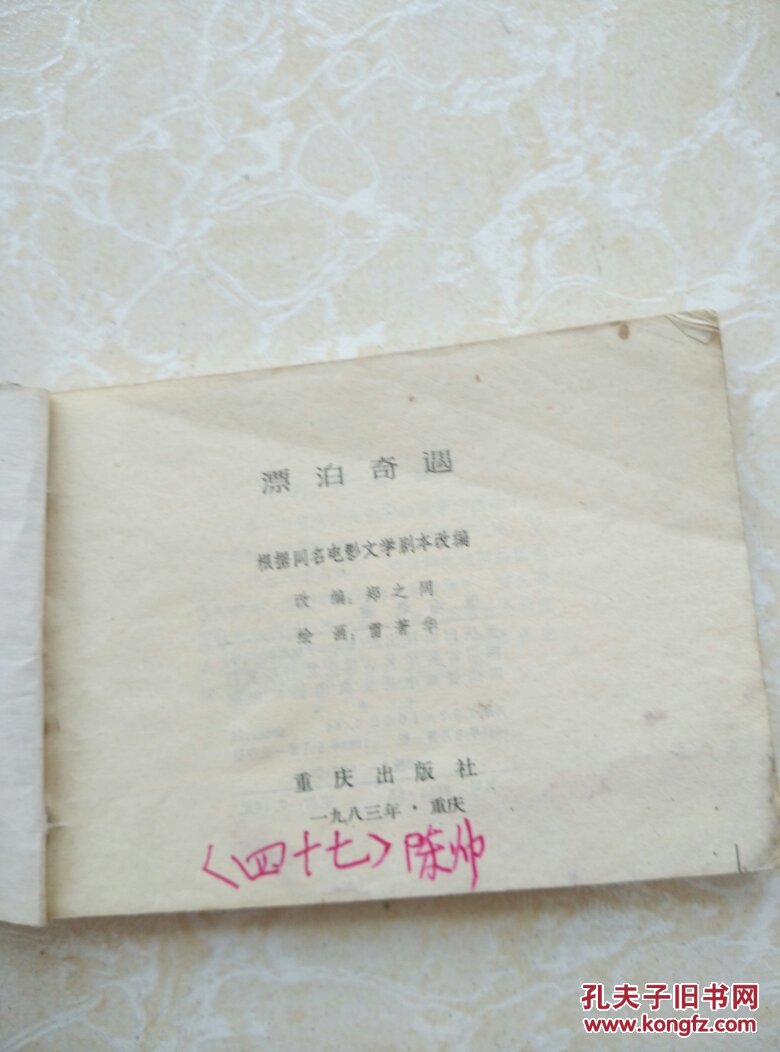 漂泊奇遇
根据同名电影文学剧本改编
改编：郑之同
绘画：雷著华
重庆出版社
一九八三年·重庆
〈四十七〉陈帅
孔夫子旧书网
www.kongfz.com